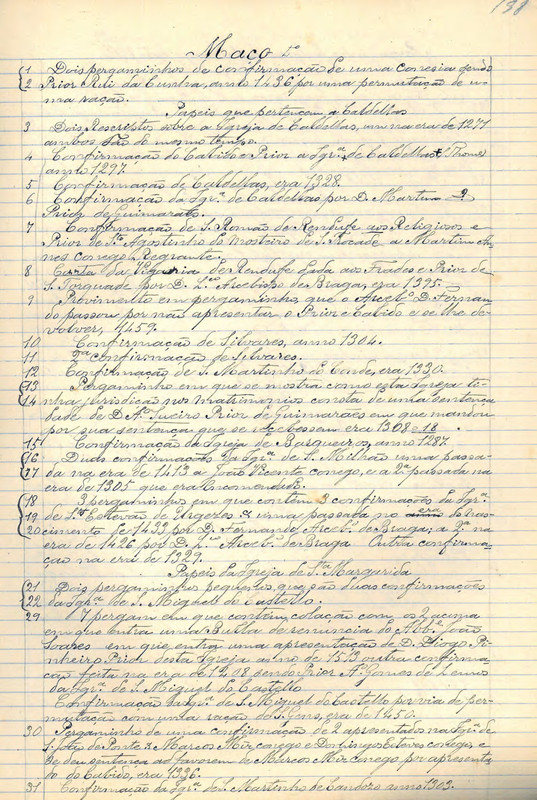 138
Maço 5º
1 Dois pergaminhos de confirmação de uma conesia sendo
2 Prior Rui da Cunha, anno 1436 por uma permutação de u-
ma ração.
Papeis que pertencem a Caldellas
3 Dois Rescriptos sobre a Igreja de Caldellas, um na era de 1271
ambos são do mesmo tempo.
4 Confirmação do Cabido e Prior a Igrª de Caldellas (Thome)
anno 1291.
5 Confirmação de Caldellas, era 1328.
6 Confirmação da Igrª de Caldellas por D. Martim
Prior de Guimarães.
7 Confirmação de S. Romão de Rendufe aos Religiosos e
Prior de Stº Agostinho do Mosteiro de S. Trocade a Martim An-
nes conego Regrante.
8 Carta da Vigaria de Rendufe dada aos Frades e Prior de
S. Torquade por D. Lço Arcebispo de Braga, era 1395.
9 Provimento em pergaminho, que o Arcebº D. Fernan-
do passou por não apresentar o Prior e Cabido e se lhe de-
volver, 1459.
10 Confirmação de Silvares, anno 1304.
11 2ª confirmação de Silvares.
12 Confirmação de S. Martinho do Conde, era 1330.
13 Pergaminho em que se mostra como esta Igreja ti-
14 nha jurisdição nos matrimonios consta de uma sentença
dada de D. Aº Sueiro Prior de Guimarães em que mandou
por sua sentença que se recebessem era 1308 e 18.
15 Confirmação da Igreja de Barqueiros, anno 1287.
16 Duas confirmações da Igª de St. Milhão uma passa-
17 da na era de 1413 a João Vicente conego, e a 2ª passada na
era de 1305 que era Encomendada.
18 3 pergaminhos em que contêm 3 confirmações da Igrª
19 de Stº Estevão de Urgezes uma passada no era do nas-
20 cimento de 1433 por D. Fernando, Arcebº de Braga; a 2ª na
era de 1426 por D. Lço Arcebº de Braga. Outra confirma-
ção na era de 1329.
Papeis da Igreja de Stª Margarida
21 Dois pergaminhos pequenos, que são duas confirmações
22 da Igrª de S. Miguel do Castello.
29 7 pergam. em que contêm colação com os 2 acima
em que entra uma Bulla de renuncia do Abbe João
Soares em que entra uma apresentação de D. Diogo Pi-
nheiro Prior desta Igreja anno de 1513 outra confirma-
ção feita na era de 1408 sendo Prior Aº Gomes de Lemos
da Igrª de S. Miguel do Castello
Confirmação da Igrª de S. Miguel do Castello por via de per-
mutação com uma ração de S. Gens, era de 1450.
30 Pergaminho de uma confirmação de 2 apresentados na Igrª de
S. João de Ponte a Marcos Miz conego e Domingos Esteves conego, e
se deu sentença ao favorem de Marcos Miz Conego por apresenta-
do do Cabido, era 1336.
31 Confirmação da Igrª de S. Martinho de Candoso anno 1303.